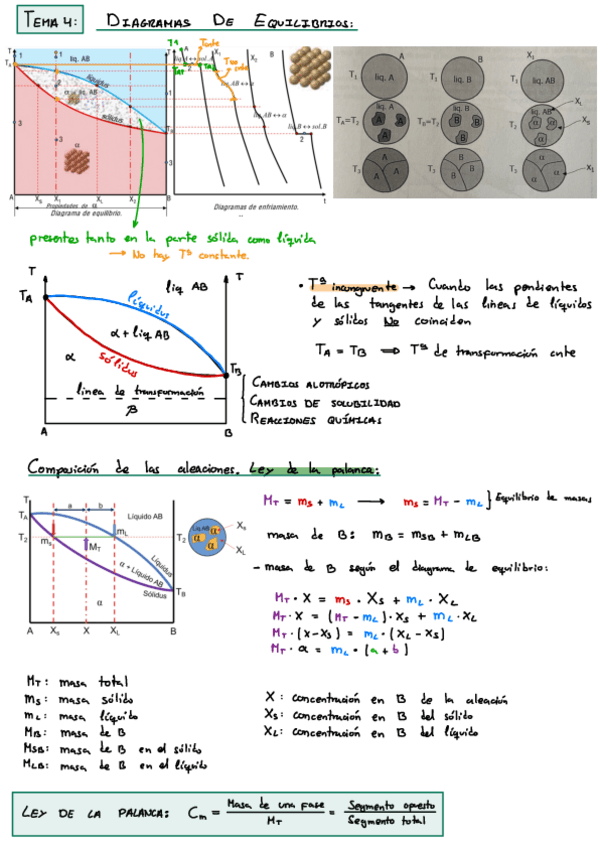 TEMA 4: DIAGRAMAS DE EQUILIBRIOS:
T
T
liq. AB
TA
líquidus
α+liq. AB
sólidus
α
TB
A XS X1 XL X2 B
Propiedades de α
Diagrama de equilibrio.
A X1 X2 B
liq.A↔sol.A
liq.AB↔α
liq.AB↔α
liq.B↔sol.B
t
Diagramas de enfriamiento.
A B X1
T1 liq. A T1 liq. B T1 liq. AB
TA=T2 liq. A A A A TB=T2 liq. B B B B T2 liq. AB α α α XL XS
T3 A A A T3 B B B T3 α α α X1
presentes tanto en la parte sólida como líquida
→ No hay Tª constante.
T T
liq AB
TA
líquidus
α + liq AB
α
sólidus
TB
linea de transformación
β
A B
CAMBIOS ALOTRÓPICOS
CAMBIOS DE SOLUBILIDAD
REACCIONES QUÍMICAS
• Tª incongruente → Cuando las pendientes
de las tangentes de las lineas de líquidos
y sólidos No coinciden
TA = TB ⟹ Tª de transformación cnte
Composición de las aleaciones. Ley de la palanca:
T
a b
Líquido AB
TA
T2 mS mL
MT
Líquidus
α + Líquido AB
Sólidus
TB
α
A XS X XL B
T2 Liq.AB α α α XS
XL
MT = mS + mL → mS = MT - mL } Equilibrio de masas
masa de B: mB = mSB + mLB
- masa de B según el diagrama de equilibrio:
MT · X = mS · XS + mL · XL
MT · X = (MT - mL) · XS + mL · XL
MT · (X-XS) = mL · (XL - XS)
MT · a = mL · (a + b)
MT: masa total
mS: masa sólido
mL: masa líquido
MB: masa de B
MSB: masa de B en el sólido
MLB: masa de B en el líquido
X: concentración en B de la aleación
XS: concentración en B del sólido
XL: concentración en B del líquido
LEY DE LA PALANCA: Cm = Masa de una fase / MT = Segmento opuesto / Segmento total